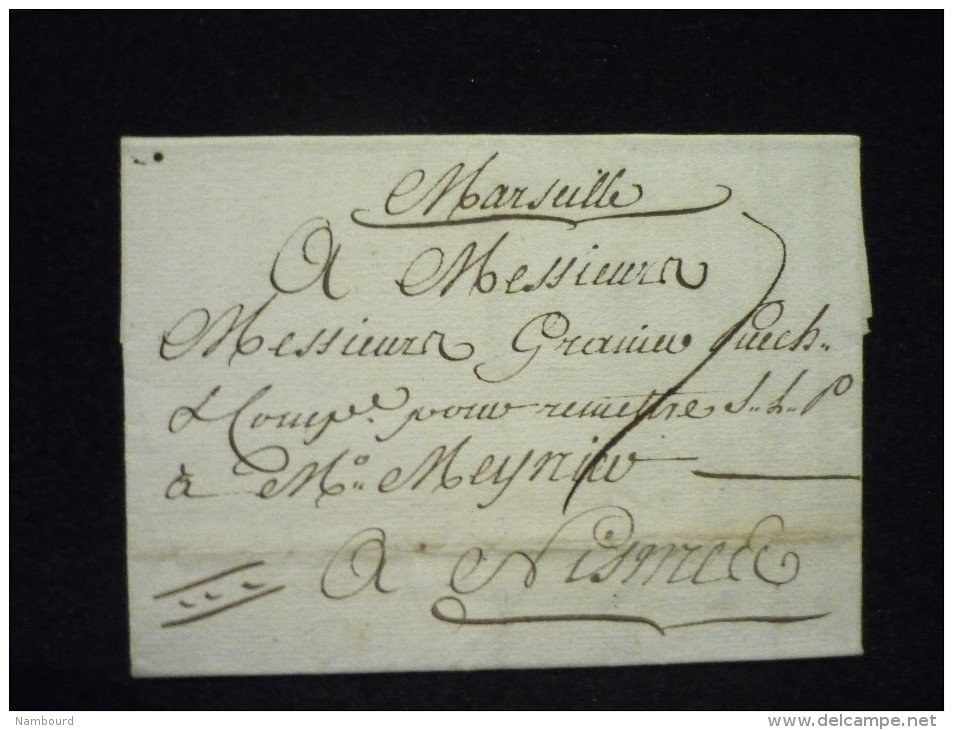 Marseille
A Messieurs
Messieurs Granier Puech
& Comp.e pour remettre S. L. P
à Mr. Meynier
A Nismes
Nambourd
www.delcampe.net